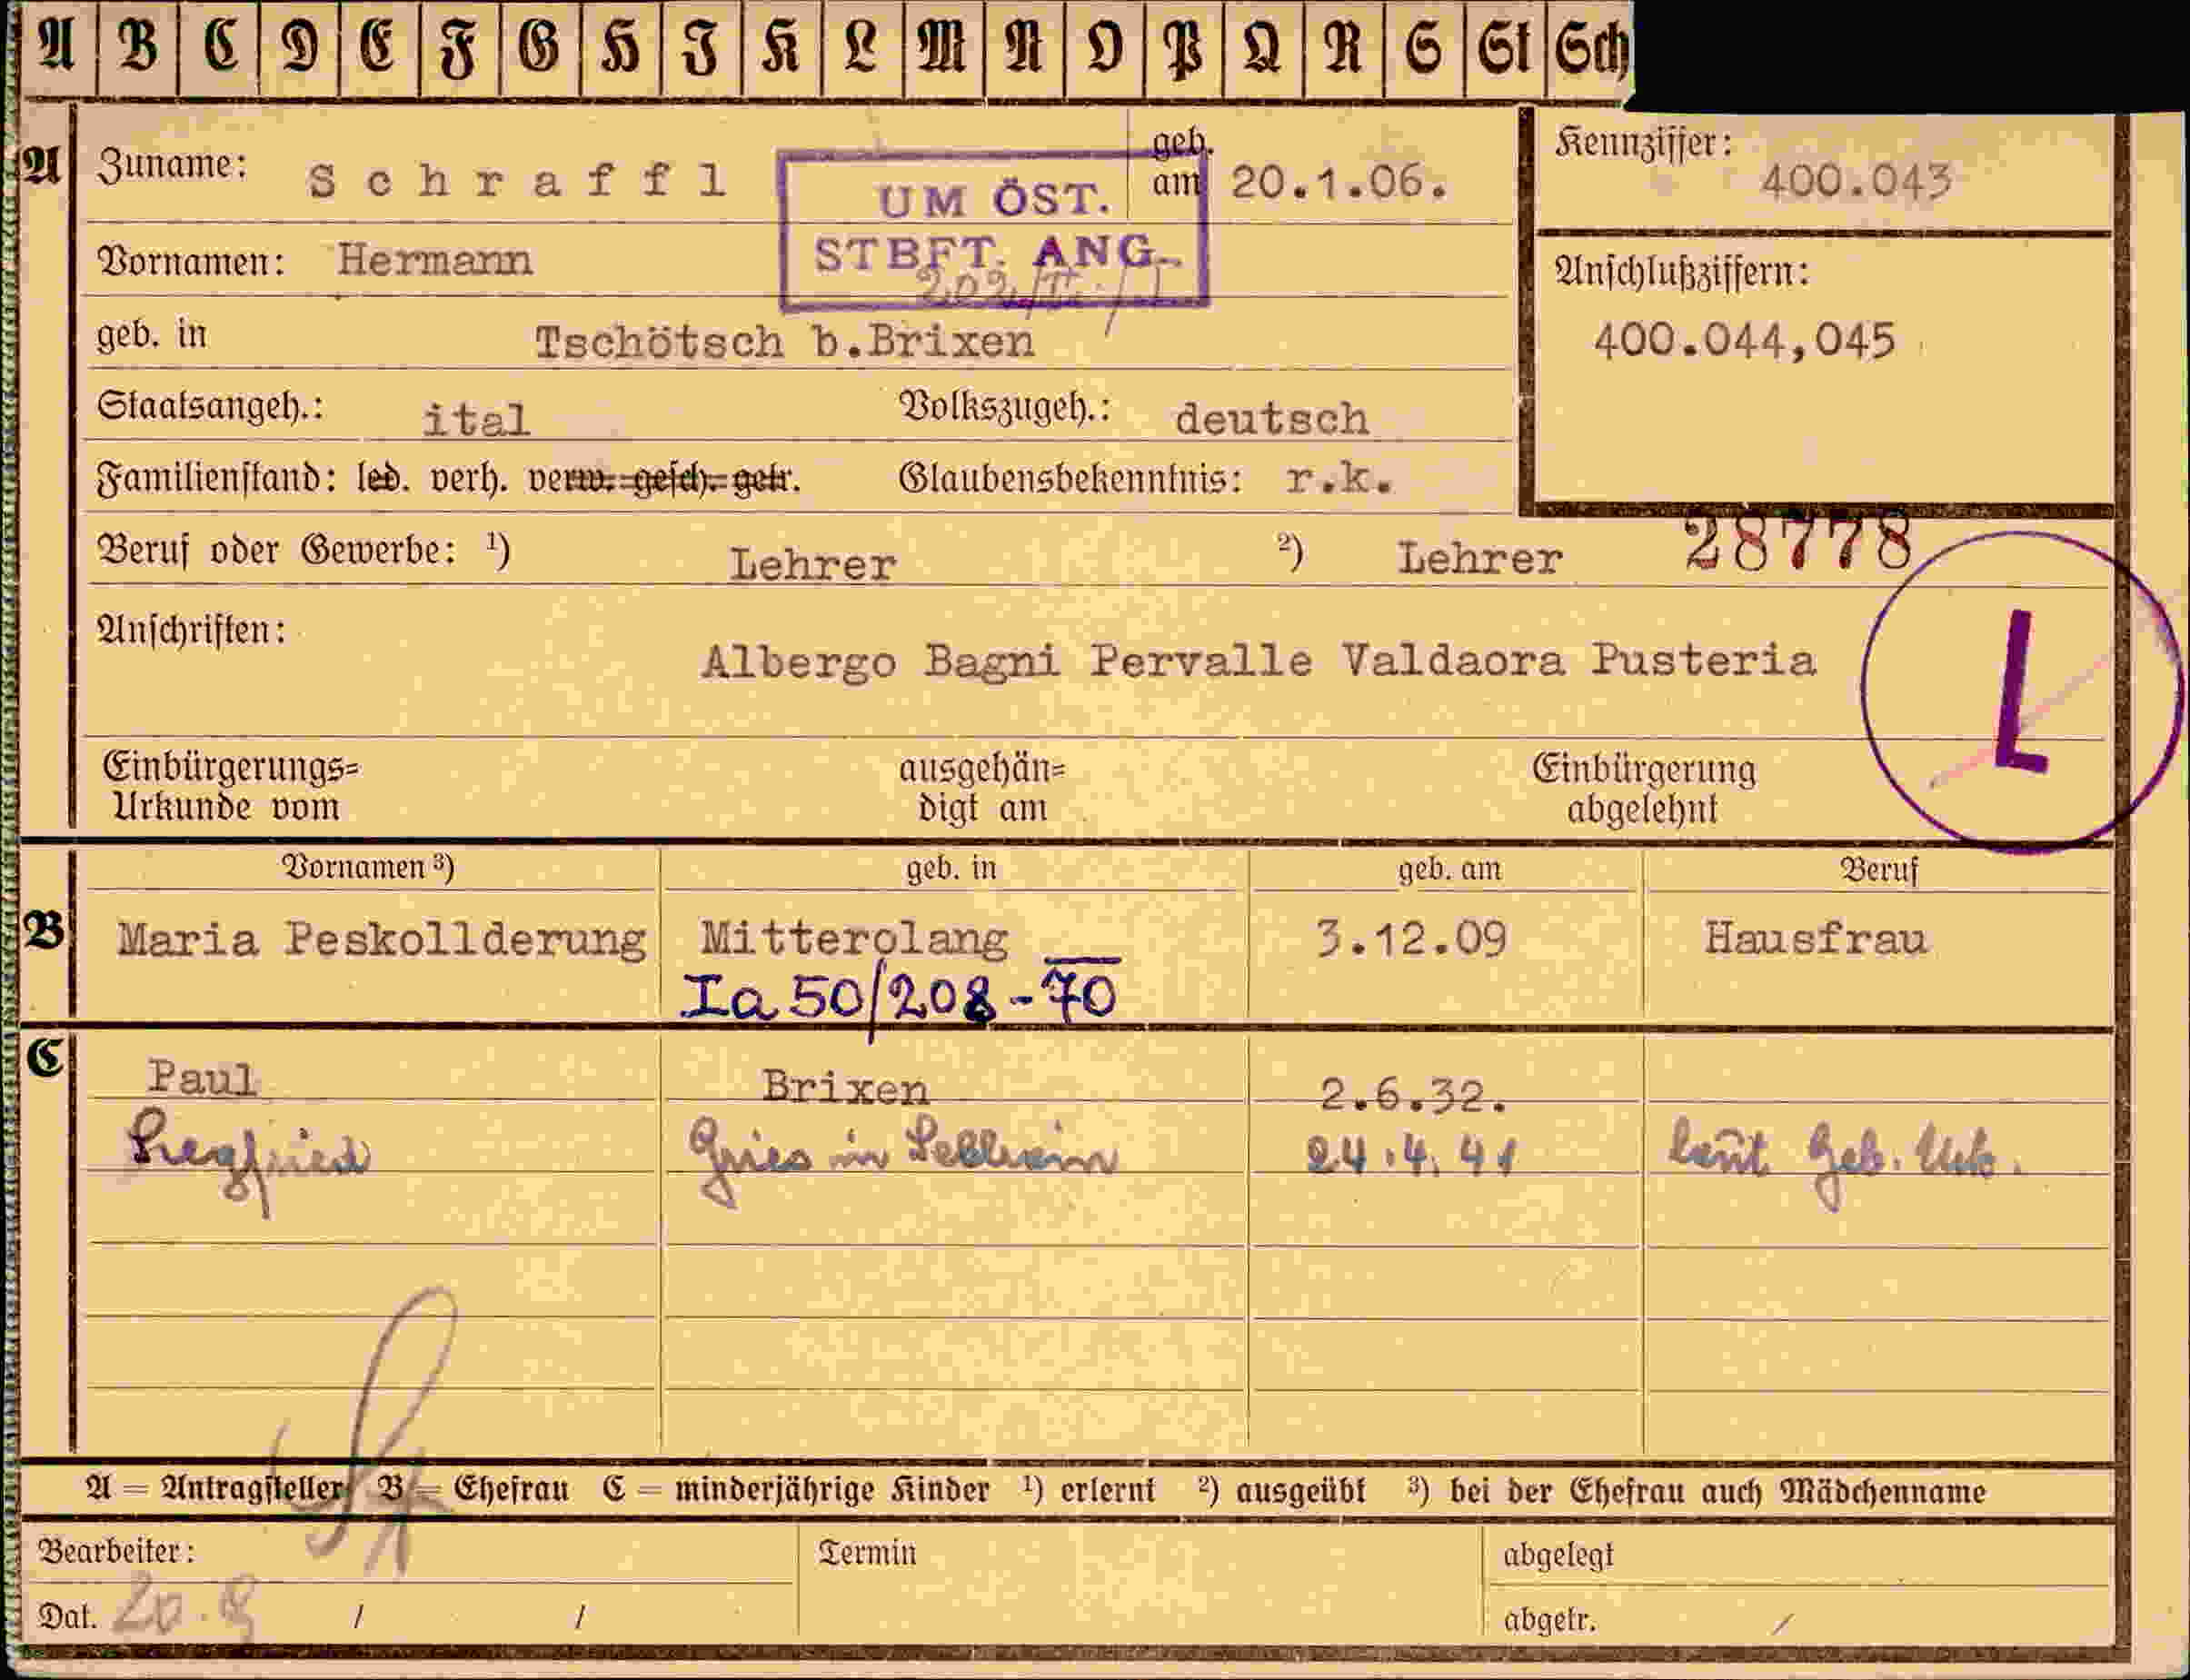 A B C D E F G H I K L M N O P Q R S St Sch
A Zuname: Schraffl geb. am 20.1.06.
UM ÖST.
STBFT. ANG.
Kennziffer: 400.043
Vornamen: Hermann
Anschlußziffern:
400.044,045
geb. in Tschötsch b.Brixen
Staatsangeh.: ital Volkszugeh.: deutsch
Familienstand: led. verh. verw. gesch. getr. Glaubensbekenntnis: r.k.
Beruf oder Gewerbe: ¹) Lehrer ²) Lehrer 28778
Anschriften: Albergo Bagni Pervalle Valdaora Pusteria
L
Einbürgerungs= Urkunde vom ausgehän= digt am Einbürgerung abgelehnt
Vornamen ³) geb. in geb. am Beruf
B Maria Peskollderung Mitterolang 3.12.09 Hausfrau
Ia 50/208-70
C Paul Brixen 2.6.32.
Siegfried Gries in Sellrain 24.4.41 laut Geb. Urk.
A = Antragsteller B = Ehefrau C = minderjährige Kinder ¹) erlernt ²) ausgeübt ³) bei der Ehefrau auch Mädchenname
Bearbeiter: Termin abgelegt
Dat. 20.8 / / abgetr. /